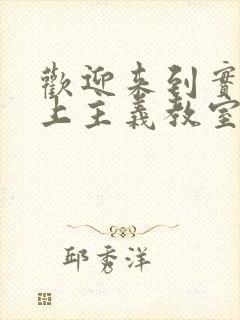 歡迎來到實
上主義教室
邱秀洋